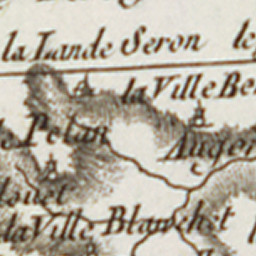 la Lande Seron
la Ville Be
Pelan
Auger
louet
la Ville Blanchet